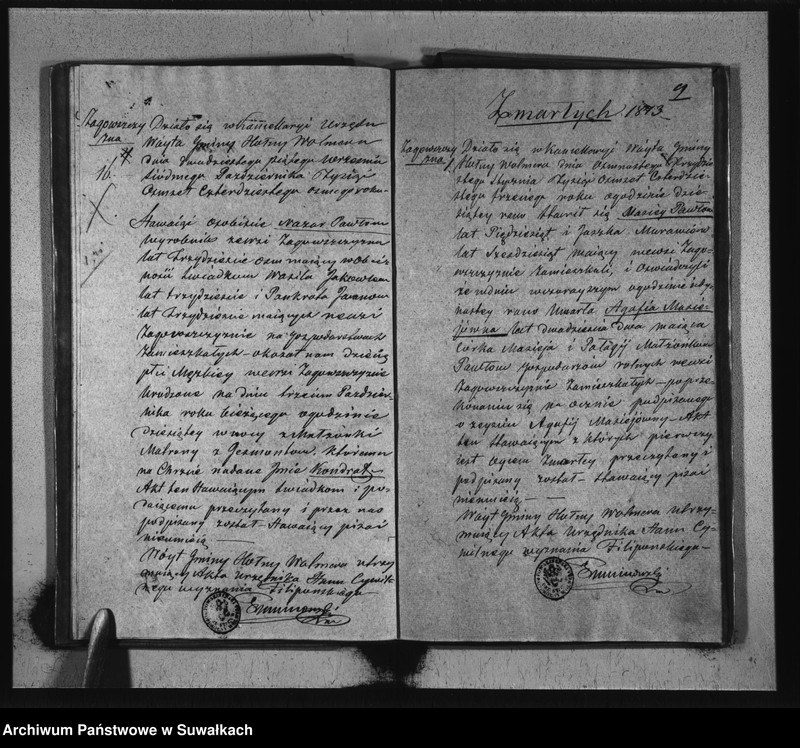 Zagowszczy Działo się w Kancellaryi Urzędu
zna Wóyta Gminy Hołny Wolmera
16. dnia Dwudziestego piątego Września
siódmego Października Tysiąc
Osmset Czterdziestego osmego roku
Stawaiąc osobiście Nazar Pawłow
Wyrobnik ze wsi
lat trzydzieście osm maiący w obec
ności świadkow Wasila Jakowlow
lat trzydzieście i Pankrata Iwanow
lat trzydzieście maiących we wsi
na Gospodarstwach
Zamieszkałych okazał nam dziecię
płci Męzkiey we wsi
Urodzone na dniu trzecim Paździer-
nika roku bieżącego o godzinie
dziesiątey w nocy z Małżonki
Matrony z któremu
na Chrzcie nadane Jmie Kondrat
Akt ten Stawaiącym świadkom i po-
przeczytany i przez nas
podpisany został Stawaiący pisać
nieumieią
Wóyt Gminy Hołny Wolmera utrzy
muiący Akta Urzędnika Stanu Cywil-
nego wyznania Filipońskiego
9
Zmarłych 1843
Działo się w Kancellaryi Wóyta Gminy
zna 1 Hołny Wolmera dnia Osmnastego
stego Stycznia Tysiąc Osmset Czterdzie-
stego trzeciego roku o godzinie dzie
siątey rano Stawił się Maciey Pawłow
lat Pięćdziesiąt i Jaszka
lat Sześćdziesiąt maiący we wsi Zago-
Zamieszkali, i Oswiadczyli
że w dniu wczorayszym o godzinie
rano Umarła Agafia Macie-
jówna lat dwadzieścia dwa maiąca
Córka Macieja i Pałagij Małżonkow
Pawłow Gospodarzow rolnych we wsi
Zamieszkałych po prze-
konaniu się na ocznie podpisanego
o zeyściu Agafij Maciejówny Akt
ten Stawaiącym z których pierwszy
iest oycem Zmarłey przeczytany i
podpisany został Stawaiący pisać
nieumieią
Wóyt Gminy Hołny Wolmera utrzy-
muiący Akta Urzędnika Stanu Cy-
wilnego wyznania Filipońskiego
Archiwum Państwowe w Suwałkach